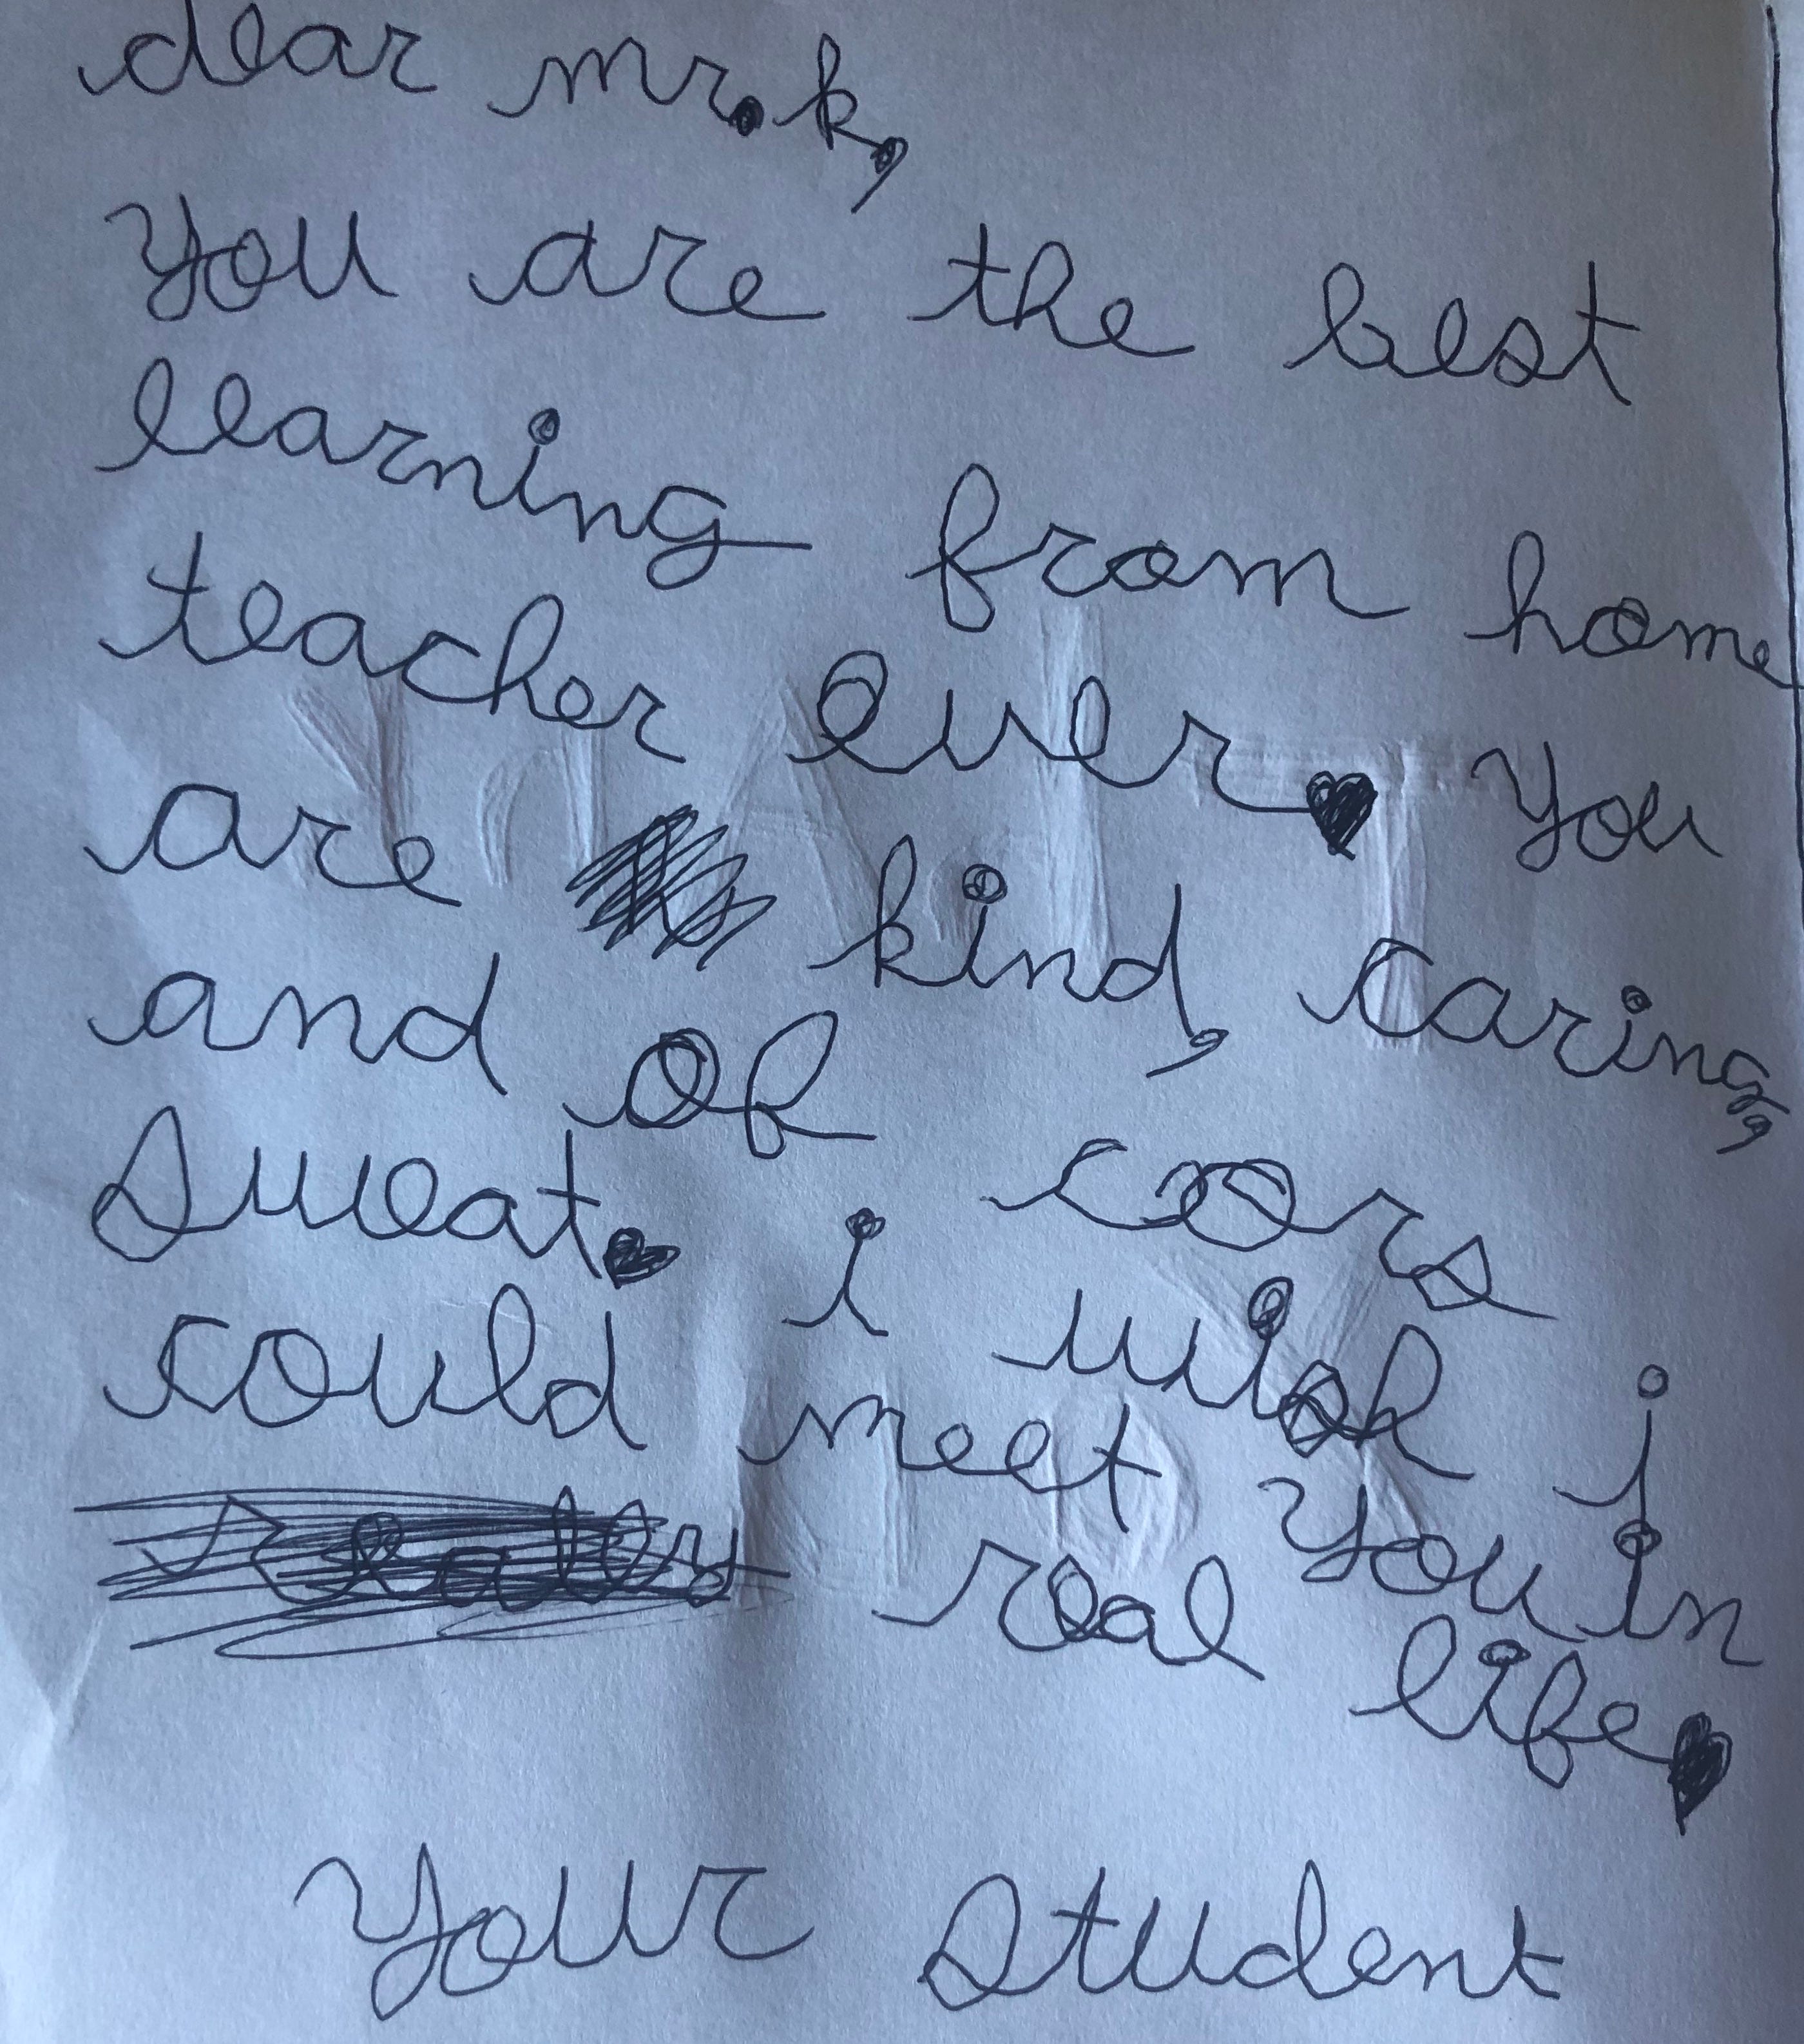 dear mr. k,
You are the best
learning from home
teacher ever You
are kind, caring,
and of cors
sweat. i wish i
could meet you in
real life
Your student